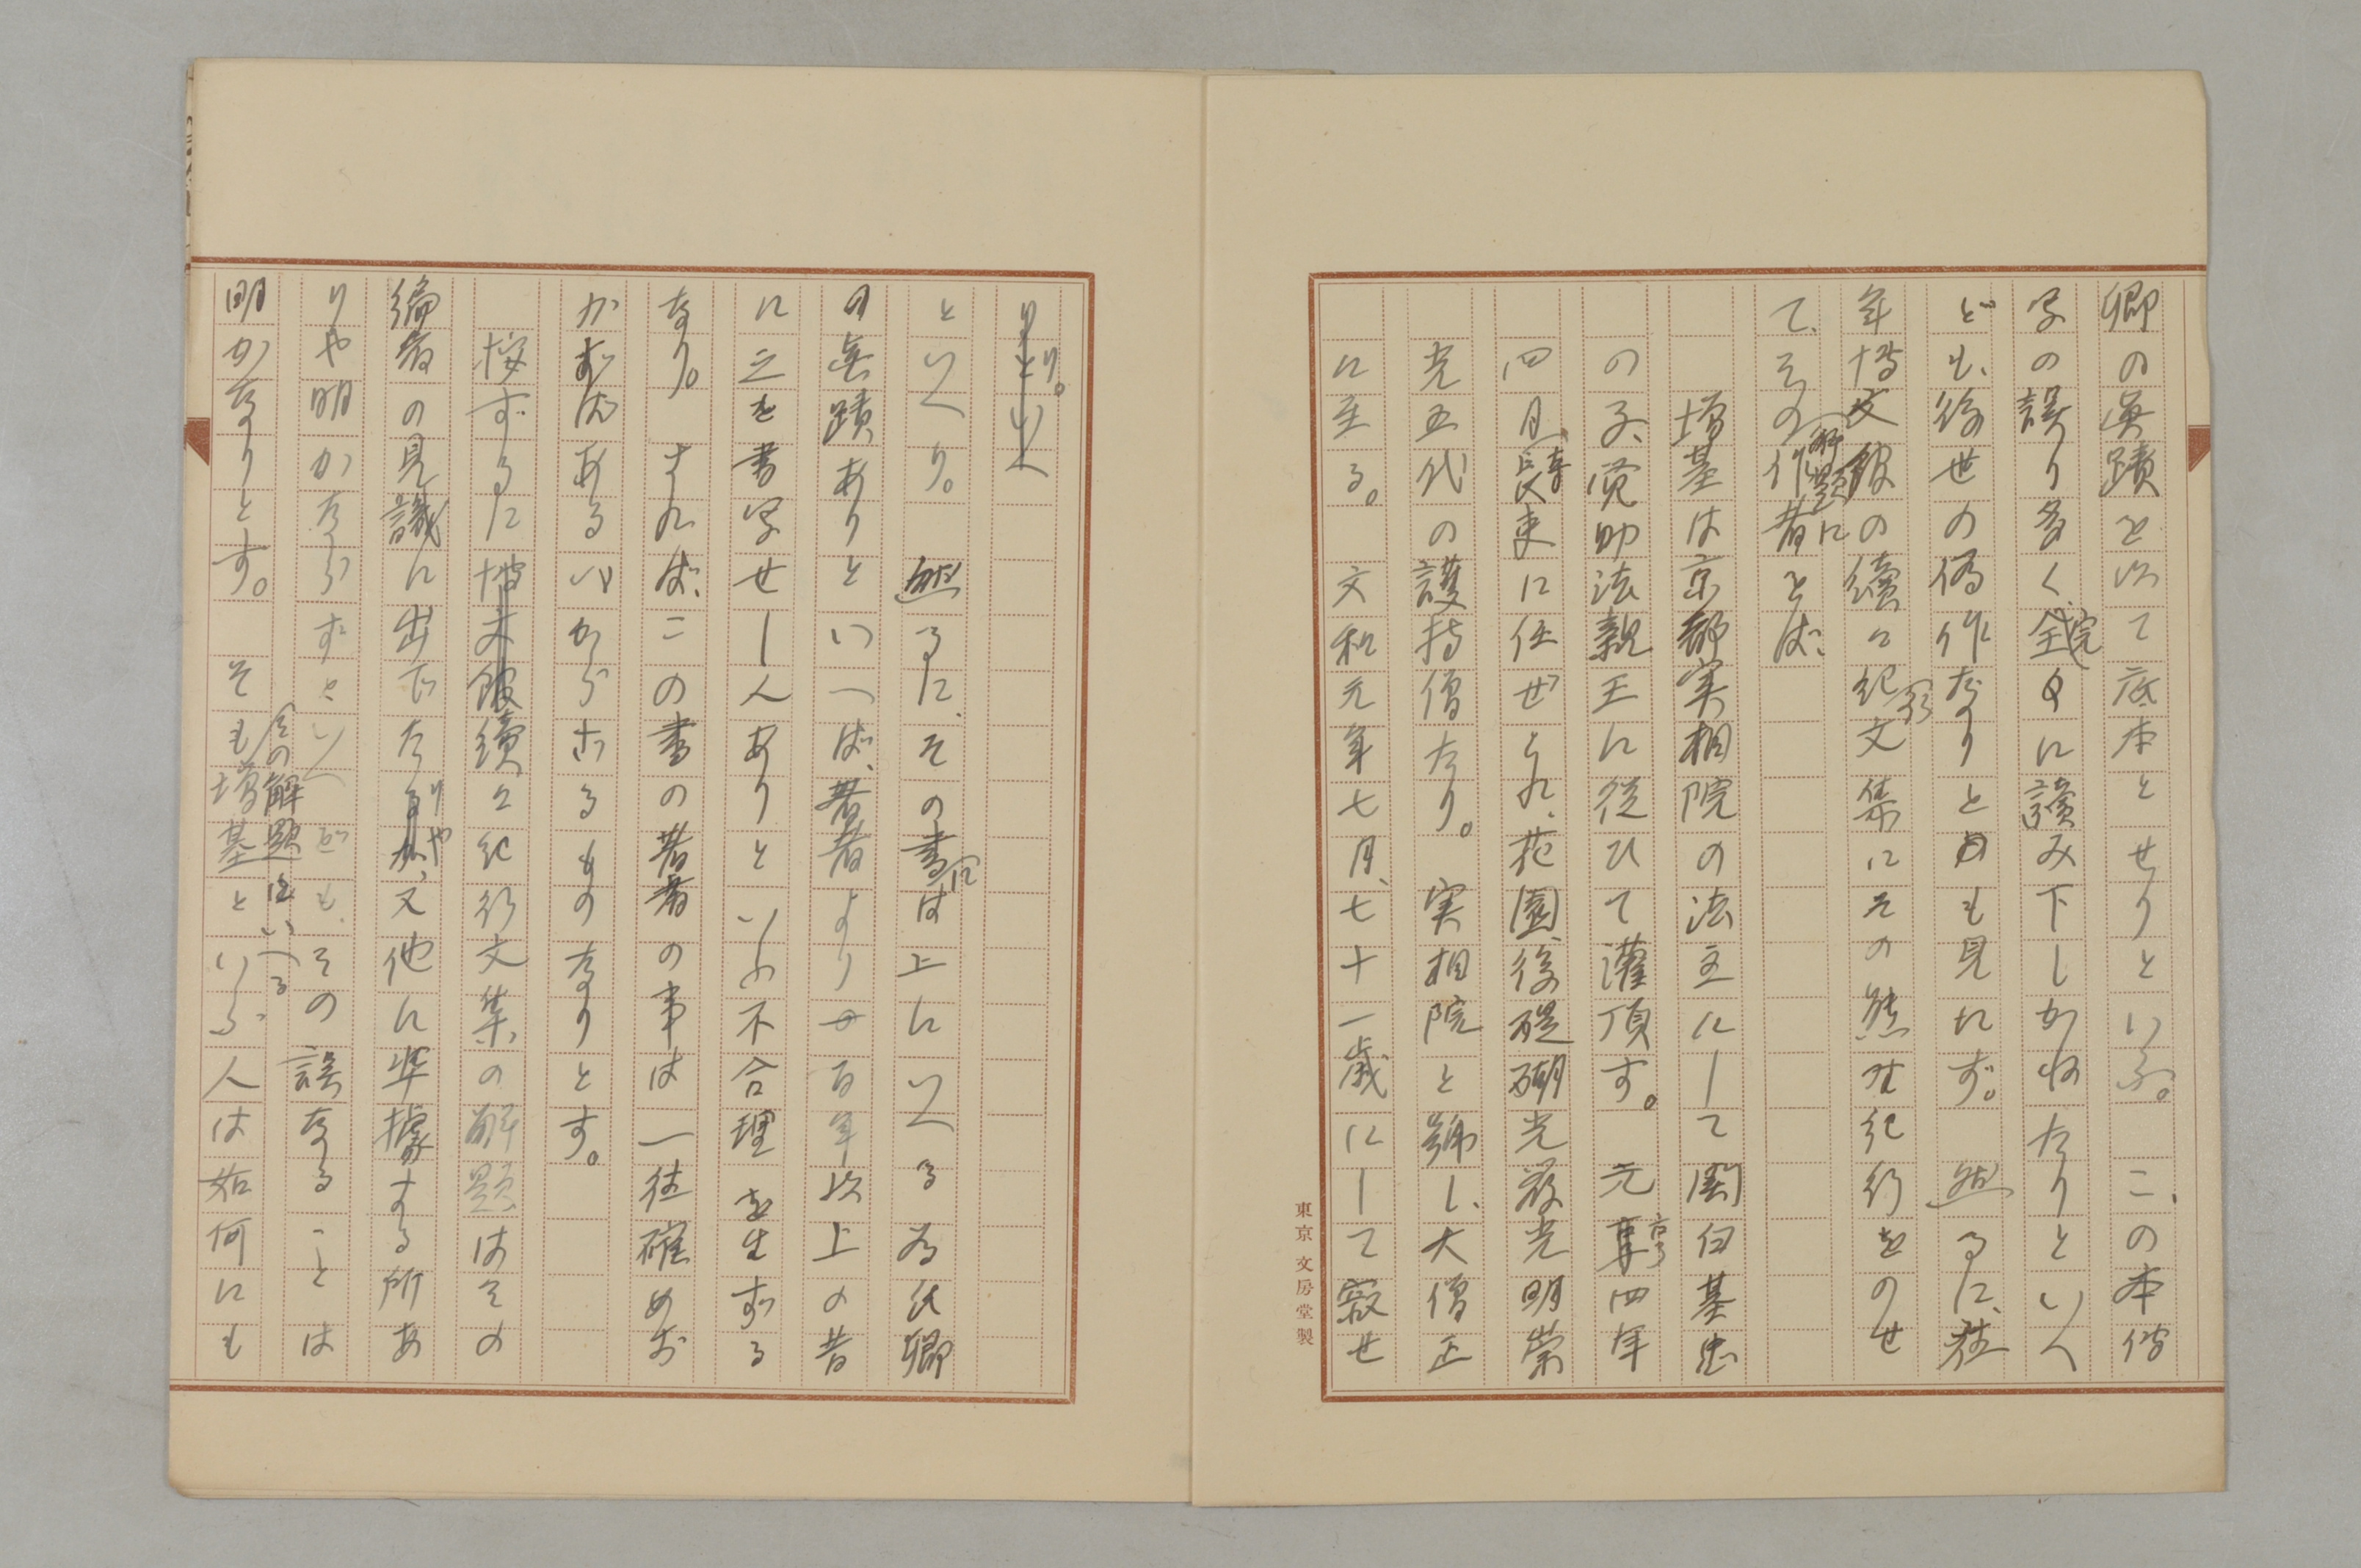 卿の眞蹟を以て底本とせりといふ。この本偕
字の誤り多く、完全に讀み下しかねたりといへ
ども、後世の偽作なりとも見れず。然るに、近
年博文館の續々紀行文集にその熊野紀行をのせ
て、その解題に作者をば、
増基は京都実相院の法主にして関白基忠
の子、覚助法親王に従ひて灌頂す。元亨四年
四月長吏に任ぜられ、花園後醍醐光厳光明崇
光五代の護持僧たり。実相院と號し、大僧正
に至る。文和元年七月、七十一歳にして寂せ
り。
といへり。然るに、その書には上にいへる為氏卿
の眞蹟ありといへば、著者より百年以上の昔
に之を書写せし人ありといふ不合理を生ずる
なり。さればこの書の著者の事は一往確めお
かずばあるべからざるものなりとす。
按ずるに續々紀行文集の解題はその
編者の見識に出でたりや、又他に準據する所あ
りや明かならずといへども、その誤なることは
明かなりとす。そも〳〵その解題にいへる増基といふ人は如何にも
東京 文房堂製